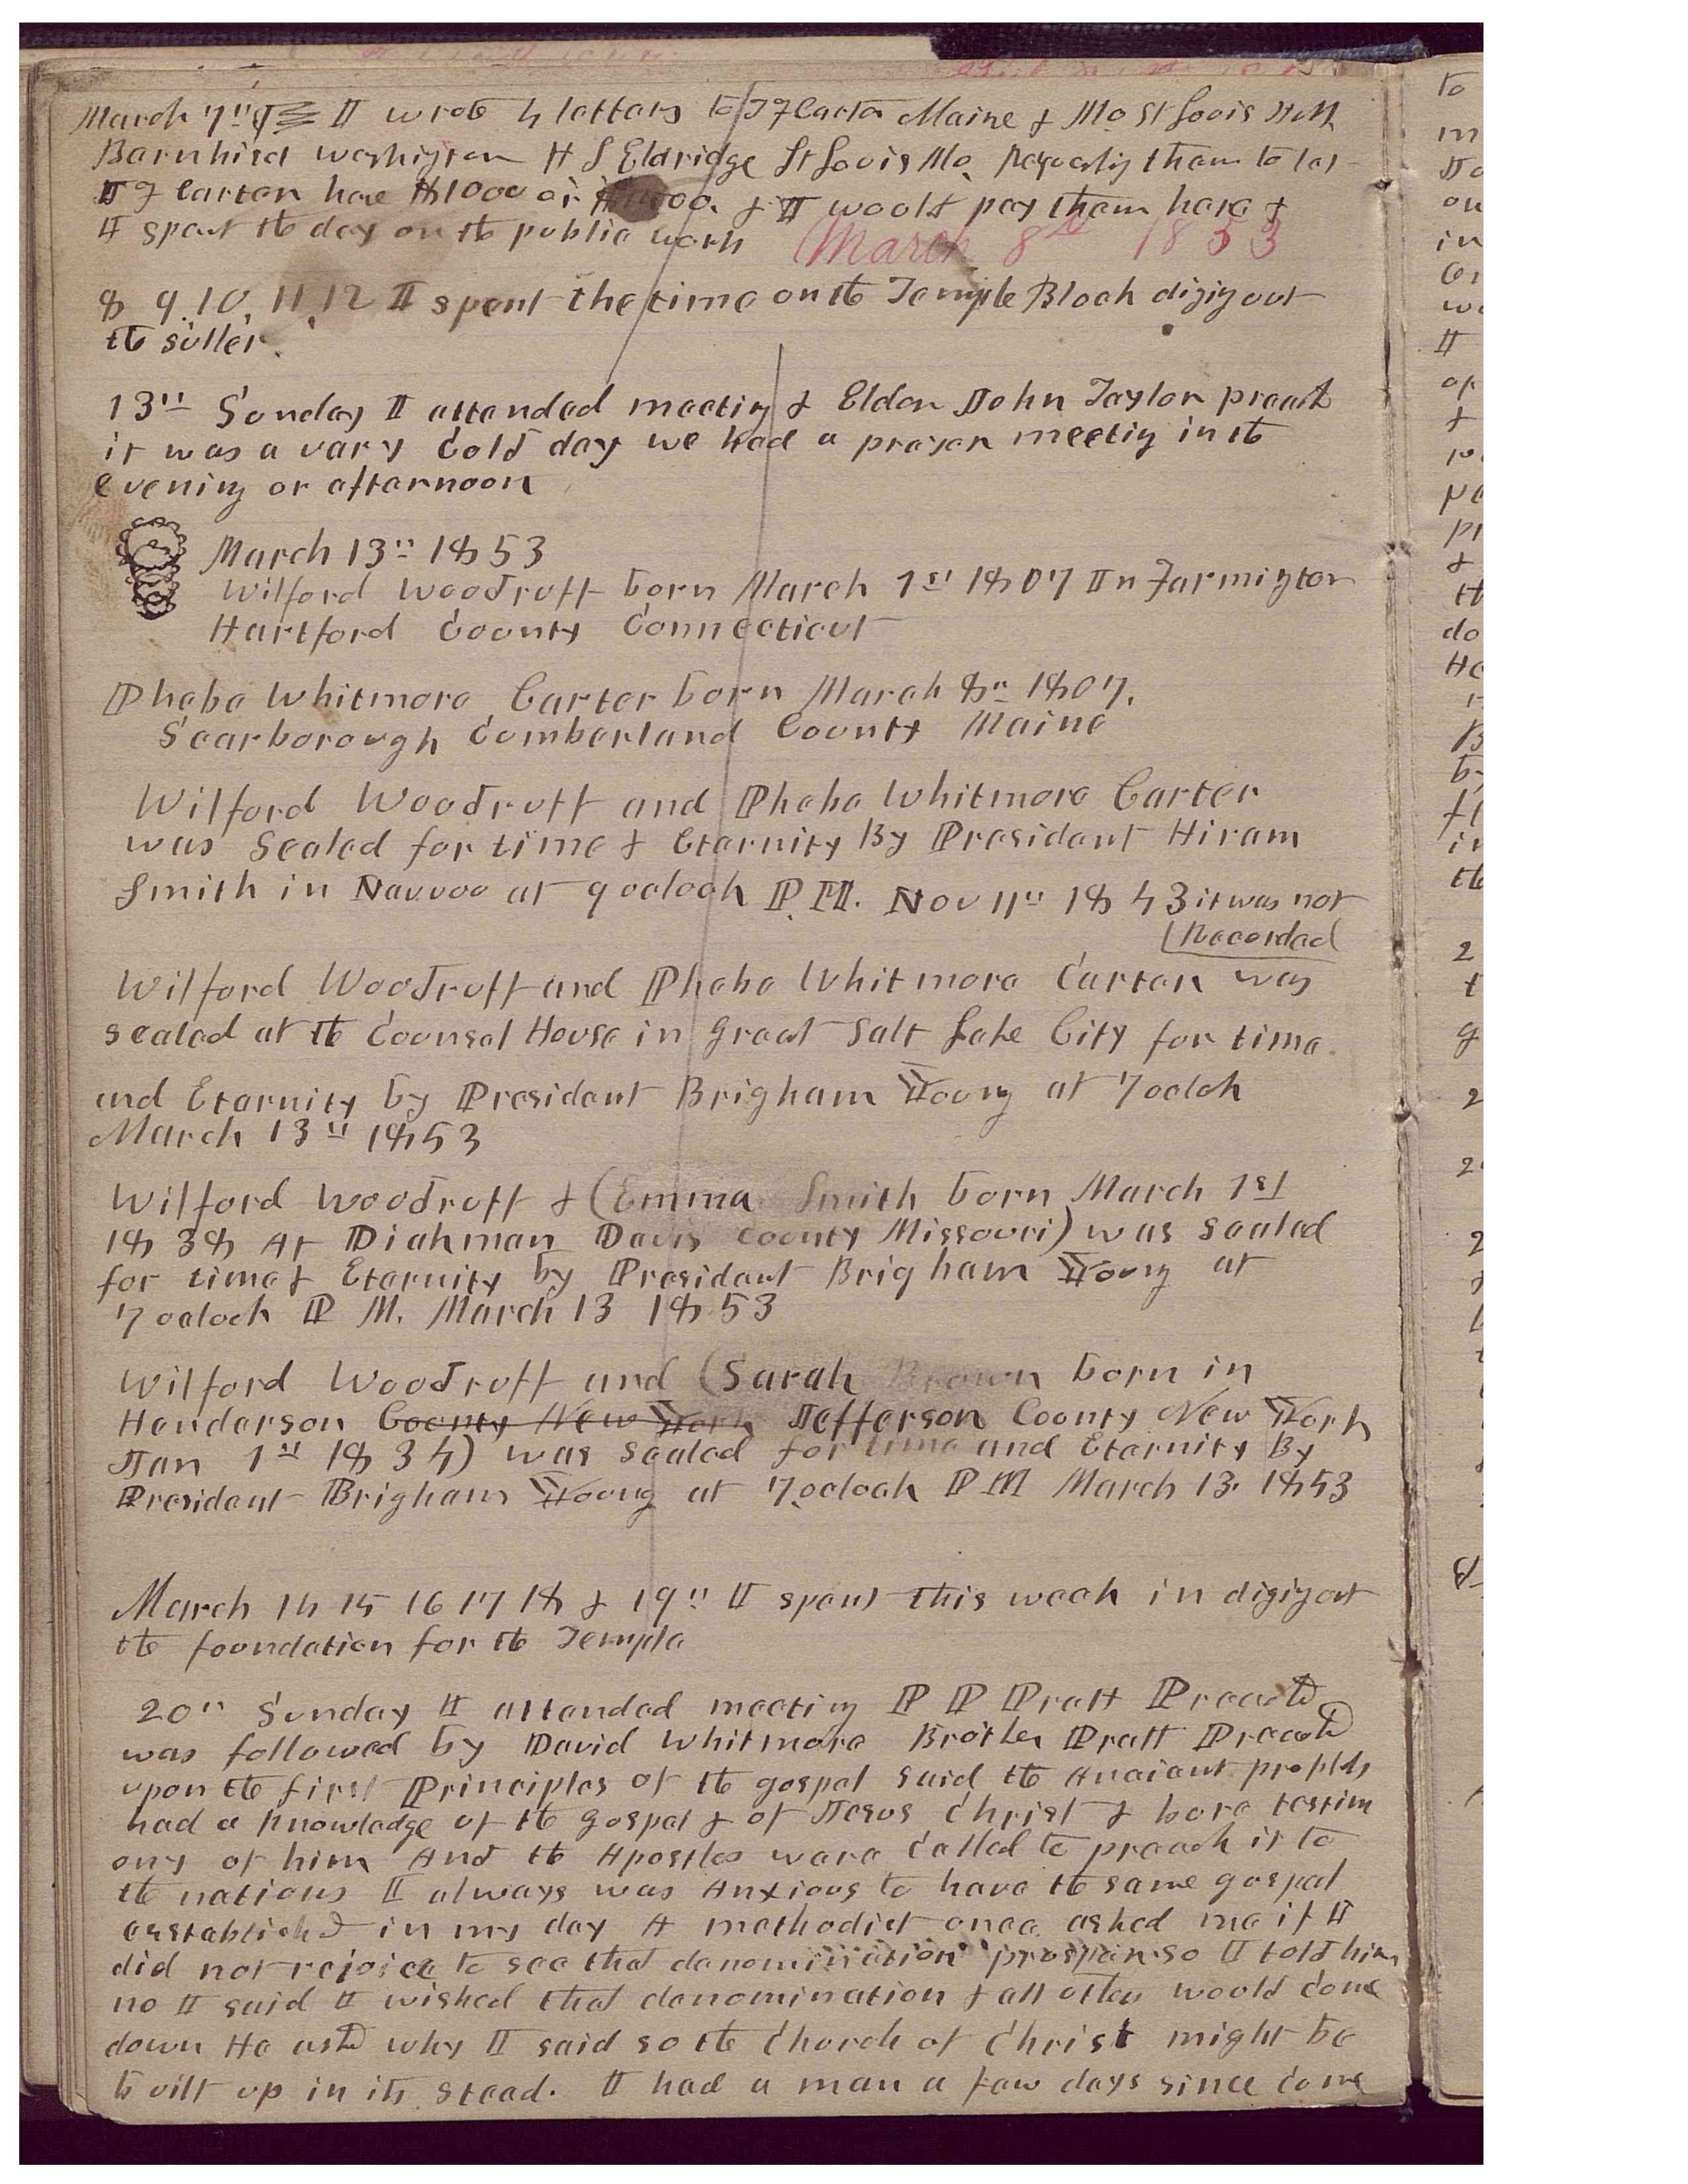 March 7th I wrote 4 letters to I F Carter Maine & Mo St Louis
Barnhisel washington H S Eldridge St Louis Mo. Requestig them to let
I F Carter have $1000 or & I would pay them here &
I spent the day on the public work March 8th 1853
8 9. 10, 11, 12 I spent the time on the Temple Block digig out
the suller.
13th Sunday I attended meeting & Elder John Taylor preach
it was a vary Cold day we had a prayer meetig in the
evening or afternoon
March 13th 1853
Wilford Woodruff born March 1st 1807 In Farmington
Hartford County Connecticut
Phebe Whitmore Carter born March 8th 1807.
Scarborough Cumberland County Maine
Wilford Woodruff and Phebe Whitmore Carter
was Sealed for time & Eternity By President Hiram
Smith in Nauvoo at 9 oclock P.M. Nov 11th 1843 it was not
Recorded
Wilford Woodruff and Phebe Whitmore Carter was
sealed at the Counsel House in Great Salt Lake City for time
and Eternity by President Brigham Young at 7 oclok
March 13th 1853
Wilford Woodruff & (Emma Smith born March 1st
1838 At Diahman Davis County Missouri) was sealed
for time & Eternity by President Brigham Young at
7 oclock P M. March 13 1853
Wilford Woodruff and (Sarah Brown born in
Henderson County New York Jefferson County New York
Jan 1st 1834) was sealed for time and Eternity By
President Brigham Young at 7 oclock P M March 13. 1853
March 14 15 16 17 18 & 19th I spent this week in digig out
the foundation for the Temple
20th Sunday I attended meeting P P Pratt Preached
was followed by David Whitmore Brother Pratt Preached
upon the first Principles of the gospel said the Anciant peoples
had a knowledge of the gospel & of Jesus Christ & bore testim
ony of him And the Apostles were Called to preach it to
the nations I always was Anxious to have the same gospel
esstablished in my day A methodist once asked me if I
did not rejoice to see that denomination prosper so I told him
no I said I wished that denomination & all others would come
down He asked why I said so the Church of Christ might be
built up in its stead. I had a man a few days since come